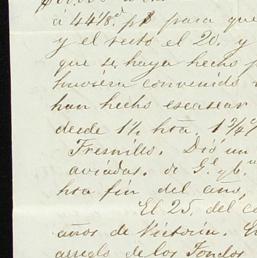 á 44⅛ para que
y el resto el 20. y
que se haya hecho p
hubiera convenido
han hecho escasear
desde 1½ hta.
Fresnillo. Dió un
aviadas. de
hta fin del año,
El 25. del co
años de Victoria.
arreglo de los Fondos